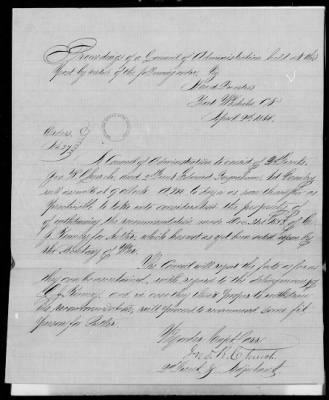 Proceedings of a Council of Administration held at this
Post by virtue of the following order. Viz
Head Quarters
Fort
April 9th 1861.
Orders,
No 27
A Council of Administration to consist of 2d Lieuts.
Jno. R. Church, and 2d Lieut Edward 1st Cavalry
will assemble at 9 o'clock A.M. to day or as soon thereafter as
practicable to take into consideration the propriety of
of withdrawing the recommendation made
J. for Sutler, which has not as yet been acted upon by
the Secretary of War.
The Council will report the facts as far as
they can be ascertained, with regard to the
J. and in case they think proper to withdraw
the recommendation, will proceed to recommend some fit
person for Sutler.
By order of Capt.
Jno. R. Church
2d Lieut & Adjutant